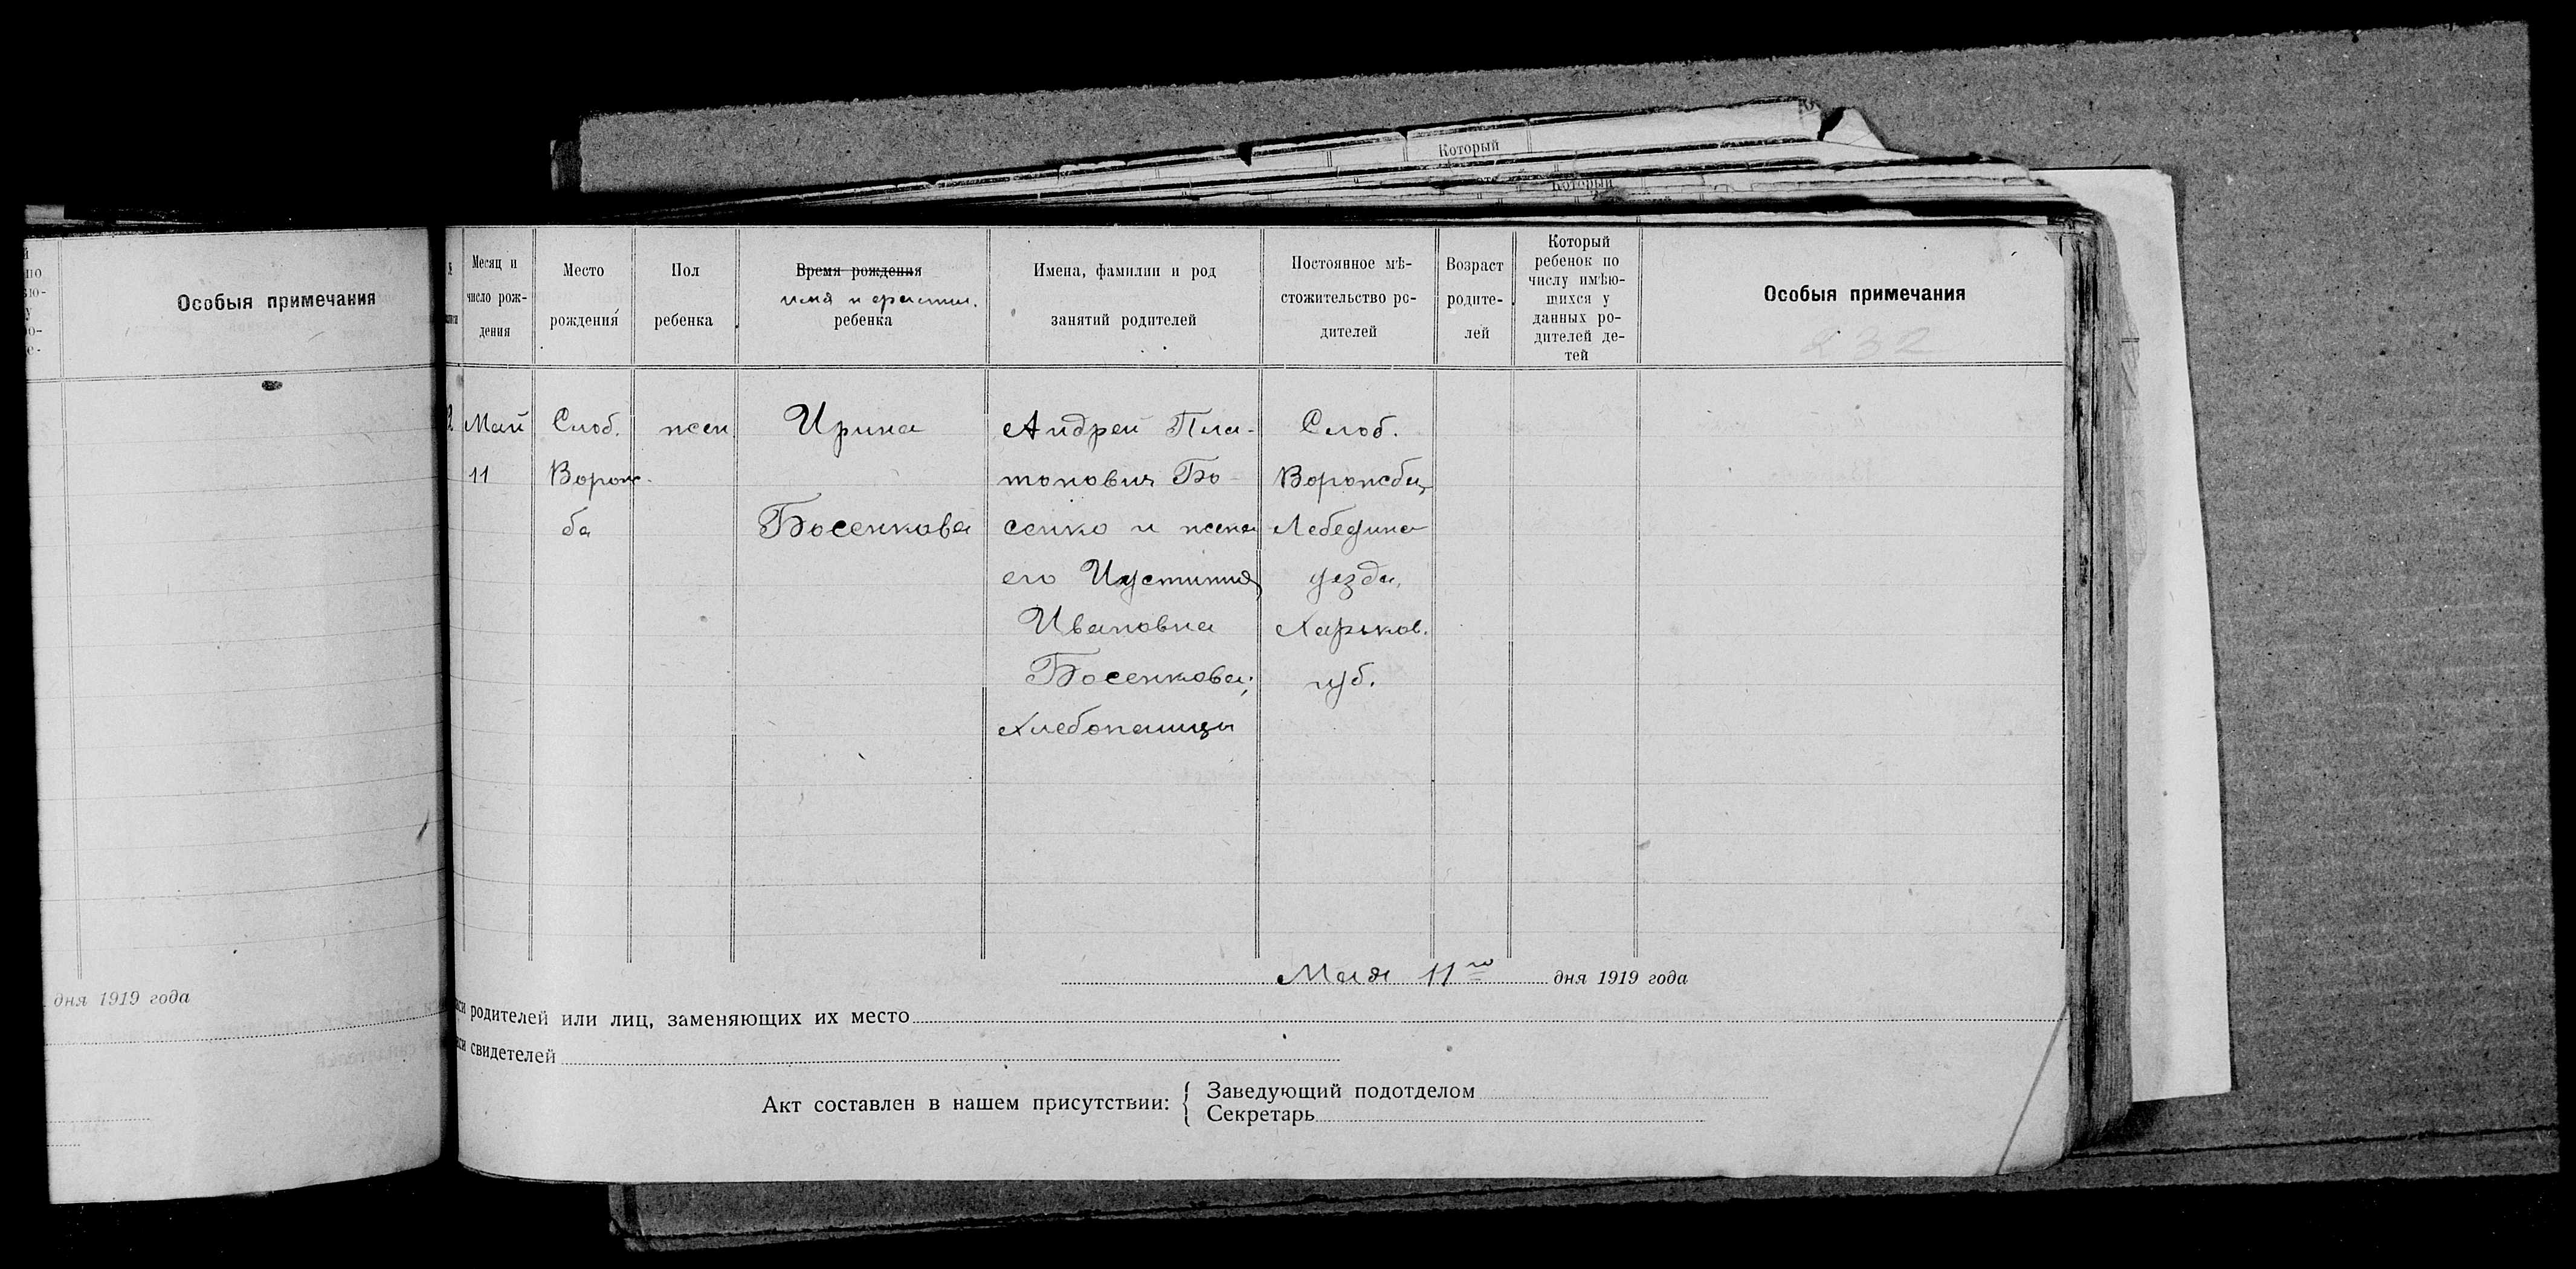 Который
Который
Особыя примечания
дня 1919 года
Месяц и
число рож-
дения
Место
рождения
Пол
ребенка
Время рождения
имя и фамил.
ребенка
Имена, фамилии и род
занятий родителей
Постоянное мѣ-
стожительство ро-
дителей
Возраст
родите-
лей
Который
ребенок по
числу имѣю-
щихся у
данных ро-
дителей де-
тей
Особыя примечания
232
Май
11
Слоб.
Ворож-
ба
жен
Ирина
Босенкова
Андрей Пла-
тонович Бо
сенко и жена
его Иустиния
Ивановна
Босенкова;
Хлебопашцы
Слоб.
Ворожбы,
Лебедина
уезда,
Харьков.
губ.
Мая 11го дня 1919 года
родителей или лиц, заменяющих их место
свидетелей
Акт составлен в нашем присутствии:
Заведующий подотделом
Секретарь